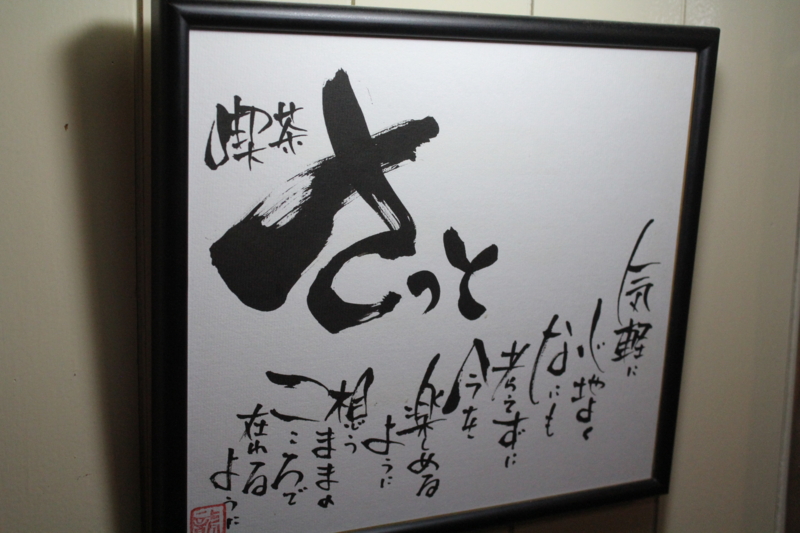 喫茶
さっと
気軽に
心地よく
なにも
考えずに
今を
楽しめる
ように
想う
ままの
こころで
在れる
ように